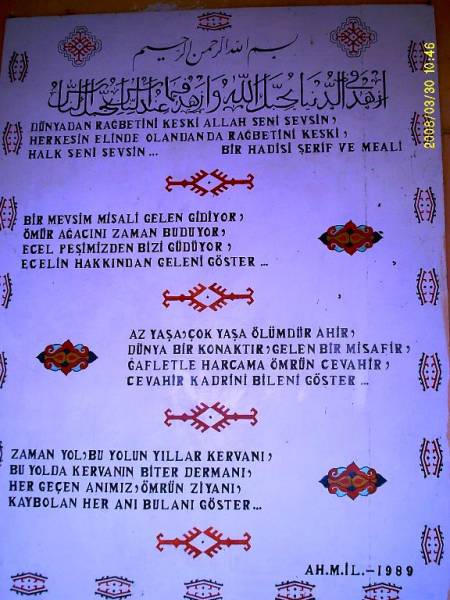 بسم الله الرحمن الرحيم
ازهد في الدنيا يحبك الله وازهد فيما عند الناس يحبك الناس
DÜNYADAN RAĞBETİNİ KESKİ ALLAH SENİ SEVSİN,
HERKESİN ELİNDE OLANDANDA RAĞBETİNİ KESKİ,
HALK SENİ SEVSİN... BİR HADİSİ ŞERİF VE MEALİ
BİR MEVSİM MİSALİ GELEN GİDİYOR,
ÖMÜR AĞACINI ZAMAN BUDUYOR,
ECEL PEŞİMİZDEN BİZİ GÜDÜYOR,
ECELİN HAKKINDAN GELENİ GÖSTER...
AZ YAŞA, ÇOK YAŞA ÖLÜMDÜR AHİR,
DÜNYA BİR KONAKTIR, GELEN BİR MİSAFİR,
GAFLETLE HARCAMA ÖMRÜN CEVAHİR,
CEVAHİR KADRİNİ BİLENİ GÖSTER...
ZAMAN YOL, BU YOLUN YILLAR KERVANI,
BU YOLDA KERVANIN BİTER DERMANI,
HER GEÇEN ANIMIZ, ÖMRÜN ZİYANI,
KAYBOLAN HER ANI BULANI GÖSTER...
AH.M.İL.-1989
2008/03/30 10:46